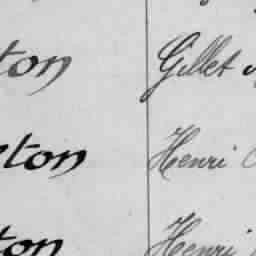 ton Gillet
ton Henri
ton Henri